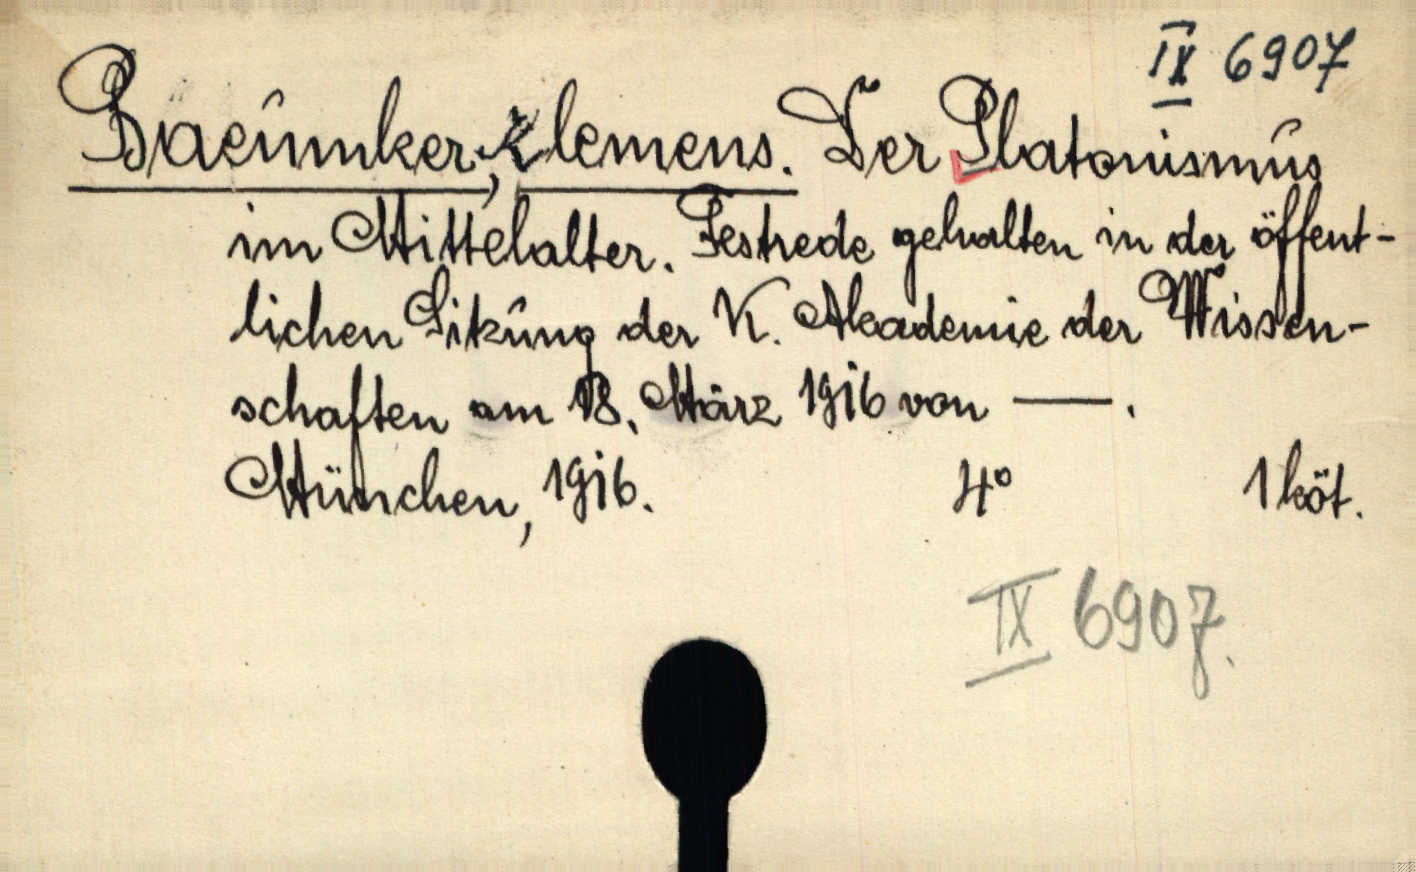 IX 6907
Baeumker, Klemens. Der Platonismus
im Mittelalter. Festrede gehalten in der öffent-
lichen Sitzung der K. Akademie der Wissen-
schaften am 18. März 1916 von —.
München, 1916. 4° 1 köt.
IX 6907.